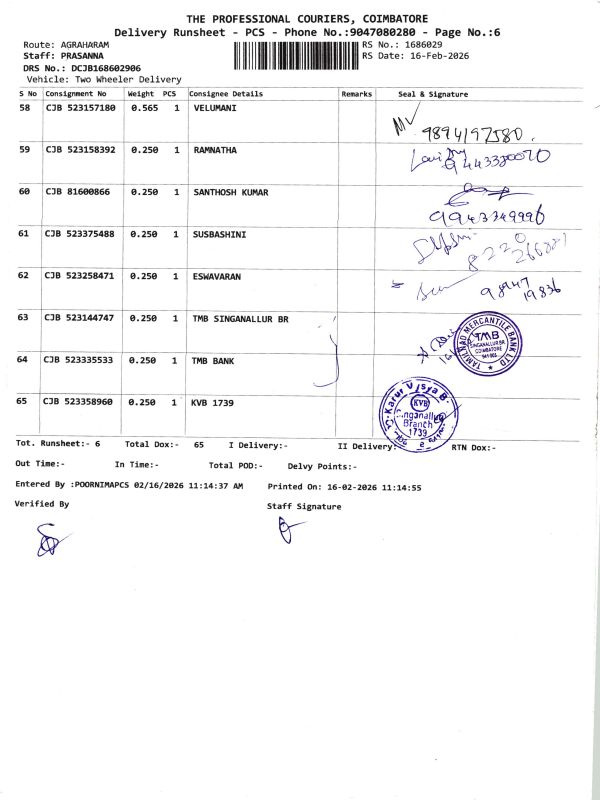 THE PROFESSIONAL COURIERS, COIMBATORE
Delivery Runsheet - PCS - Phone No.:9047080280 - Page No.:6
Route: AGRAHARAM
Staff: PRASANNA
DRS No.: DCJB168602906
Vehicle: Two Wheeler Delivery
RS No.: 1686029
RS Date: 16-Feb-2026
S No Consignment No Weight PCS Consignee Details Remarks Seal & Signature
58 CJB 523157180 0.565 1 VELUMANI
9894197580.
59 CJB 523158392 0.250 1 RAMNATHA
60 CJB 81600866 0.250 1 SANTHOSH KUMAR
9943349996
61 CJB 523375488 0.250 1 SUSBASHINI
62 CJB 523258471 0.250 1 ESWAVARAN
98947
19836
63 CJB 523144747 0.250 1 TMB SINGANALLUR BR
TAMILNAD MERCANTILE BANK LTD
TMB
SINGANALLUR BR
COIMBATORE
64 CJB 523335533 0.250 1 TMB BANK
65 CJB 523358960 0.250 1 KVB 1739
Karur Vysya B
KVB
Branch
1739
Tot. Runsheet:- 6 Total Dox:- 65 I Delivery:- II Delivery:- RTN Dox:-
Out Time:- In Time:- Total POD:- Delvy Points:-
Entered By :POORNIMAPCS 02/16/2026 11:14:37 AM Printed On: 16-02-2026 11:14:55
Verified By Staff Signature